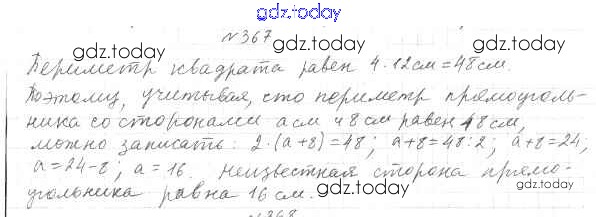 gdz.today
№367
gdz.today gdz.today
Периметр квадрата равен 4·12см=48см.
Поэтому, учитывая, что периметр прямоуголь-
ника со сторонами а см и 8 см равен 48 см,
можно записать: 2·(а+8)=48; а+8=48:2; а+8=24;
а=24-8; а=16. Неизвестная сторона прямо-
угольника равна 16 см.
gdz.today gdz.today
№368